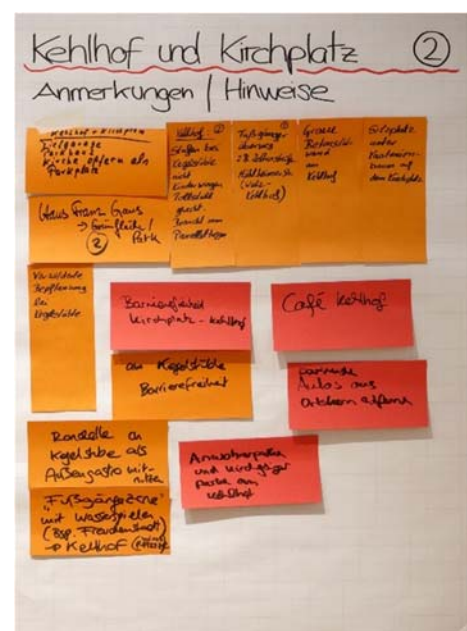 Kehlhof und Kirchplatz ②
Anmerkungen / Hinweise
Kehlhof + Kirchplatz
Tiefgarage
Parkhaus
Kirche opfern als
Parkplatz
Haus Franz Gaus
→ Grünfläche /
Park
②
Kehlhof ②
Stufen bei
Kegelstüble
nicht
Kinderwagen
Rollstuhl
Fußgänger
überweg
z.B.
Kehlhof)
Grosse
wand
am
Kehlhof
Sitzplätze
unter
Kastanien-
bäumen auf
dem Kirchplatz
Bepflanzung
bei
Kegelstüble
Barrierefreiheit
Kirchplatz - Kehlhof
Café Kehlhof
am Kegelstüble
Barrierefreiheit
parkende
Autos aus
Ortskern entfernen
Rondelle an
Kegelstube als
Außengastro mit-
nutzen
Anwohnerparken
und Kirchgänger
parken am
Kehlhof
"Fußgängerzone"
mit Wasserspielen
(Bsp. Freudenstadt)
→ Kelhof